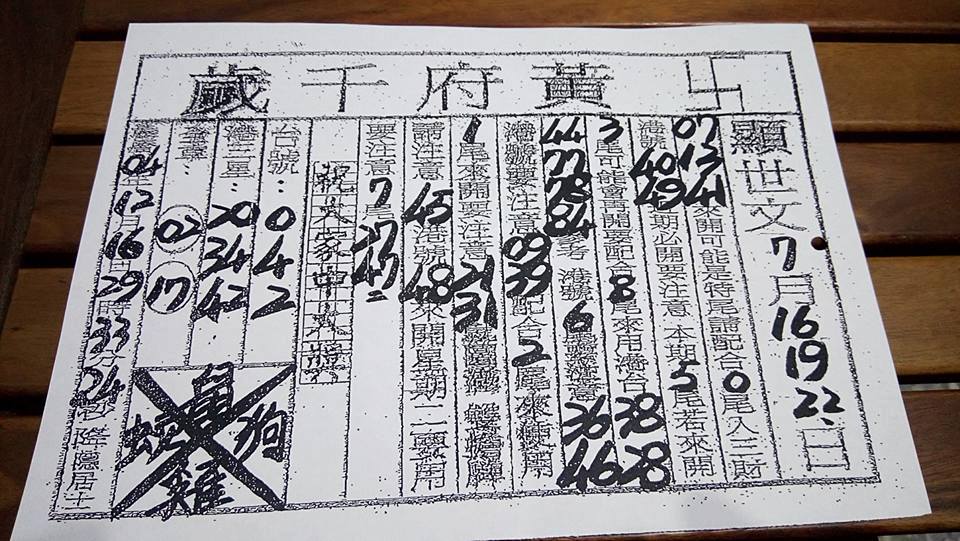 卍黃府千歲
顯世文7月16 19 22日
07 13 41來開可能是特尾請配合0尾入三財
港號40 49期必開要注意 本期5尾若來開
3尾可能會再開要配合8尾來用港台38 28
44 77 78 84參考 港號6尾要注意36 46
港號要注意09 39配合2尾來使用
1尾來開要注意21 31
請注意45港號48來開星期二要用
要注意7尾
祝大家中大獎
台號:0 4 2
港三星:20 34 42
02 17
04年12月16日29時33分24秒 際隱居士
蛇 狗
雞